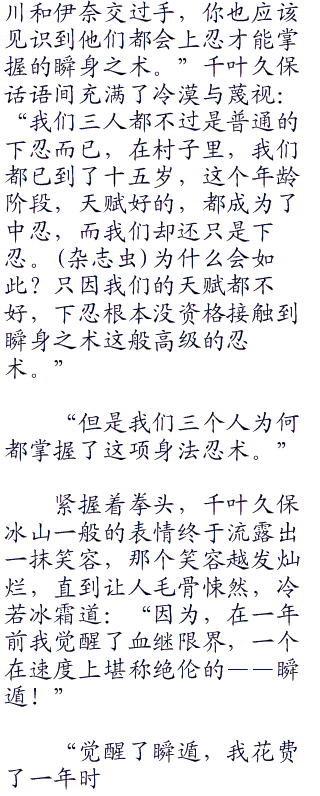 川和伊奈交过手，你也应该
见识到他们都会上忍才能掌
握的瞬身之术。”千叶久保
话语间充满了冷漠与蔑视：
“我们三人都不过是普通的
下忍而已，在村子里，我们
都已到了十五岁，这个年龄
阶段，天赋好的，都成为了
中忍，而我们却还只是下
忍。(杂志虫)为什么会如
此？只因我们的天赋都不
好，下忍根本没资格接触到
瞬身之术这般高级的忍
术。”
“但是我们三个人为何
都掌握了这项身法忍术。”
紧握着拳头，千叶久保
冰山一般的表情终于流露出
一抹笑容，那个笑容越发灿
烂，直到让人毛骨悚然，冷
若冰霜道：“因为，在一年
前我觉醒了血继限界，一个
在速度上堪称绝伦的——瞬
遁！”
“觉醒了瞬遁，我花费
了一年时